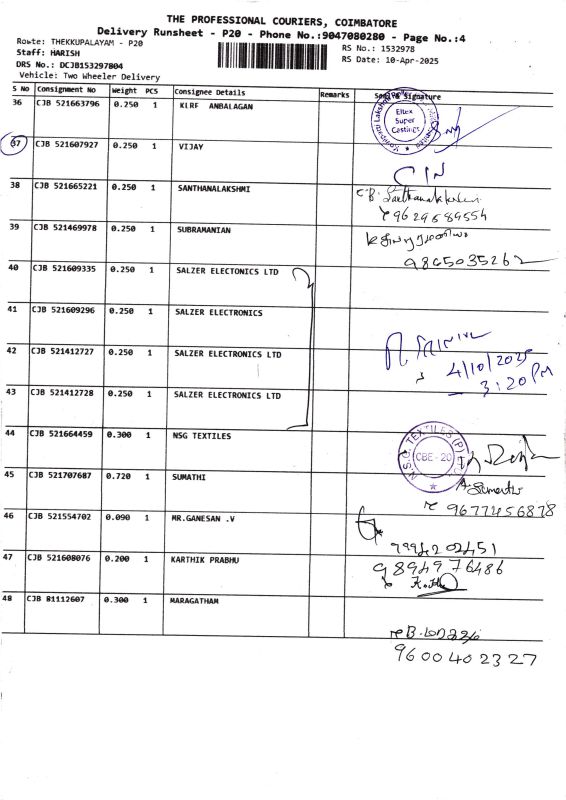 THE PROFESSIONAL COURIERS, COIMBATORE
Delivery Runsheet - P20 - Phone No.:9047080280 - Page No.:4
Route: THEKKUPALAYAM - P20
Staff: HARISH
DRS No.: DCJB153297804
Vehicle: Two Wheeler Delivery
RS No.: 1532978
RS Date: 10-Apr-2025
S No Consignment No Weight PCS Consignee Details Remarks Seal & Signature
36 CJB 521663796 0.250 1 KLRF ANBALAGAN
Eltex Super Castings
37 CJB 521607927 0.250 1 VIJAY
38 CJB 521665221 0.250 1 SANTHANALAKSHMI
9629589554
39 CJB 521469978 0.250 1 SUBRAMANIAN
9865035262
40 CJB 521609335 0.250 1 SALZER ELECTONICS LTD
41 CJB 521609296 0.250 1 SALZER ELECTRONICS
42 CJB 521412727 0.250 1 SALZER ELECTRONICS LTD
4/10/2025
3:20 PM
43 CJB 521412728 0.250 1 SALZER ELECTRONICS LTD
44 CJB 521664459 0.300 1 NSG TEXTILES
N.S.G. TEXTILES (P) LTD
CBE - 20
45 CJB 521707687 0.720 1 SUMATHI
9677456878
46 CJB 521554702 0.090 1 MR.GANESAN .V
9994202451
47 CJB 521608076 0.200 1 KARTHIK PRABHU
9894976486
48 CJB 81112607 0.300 1 MARAGATHAM
9600402327